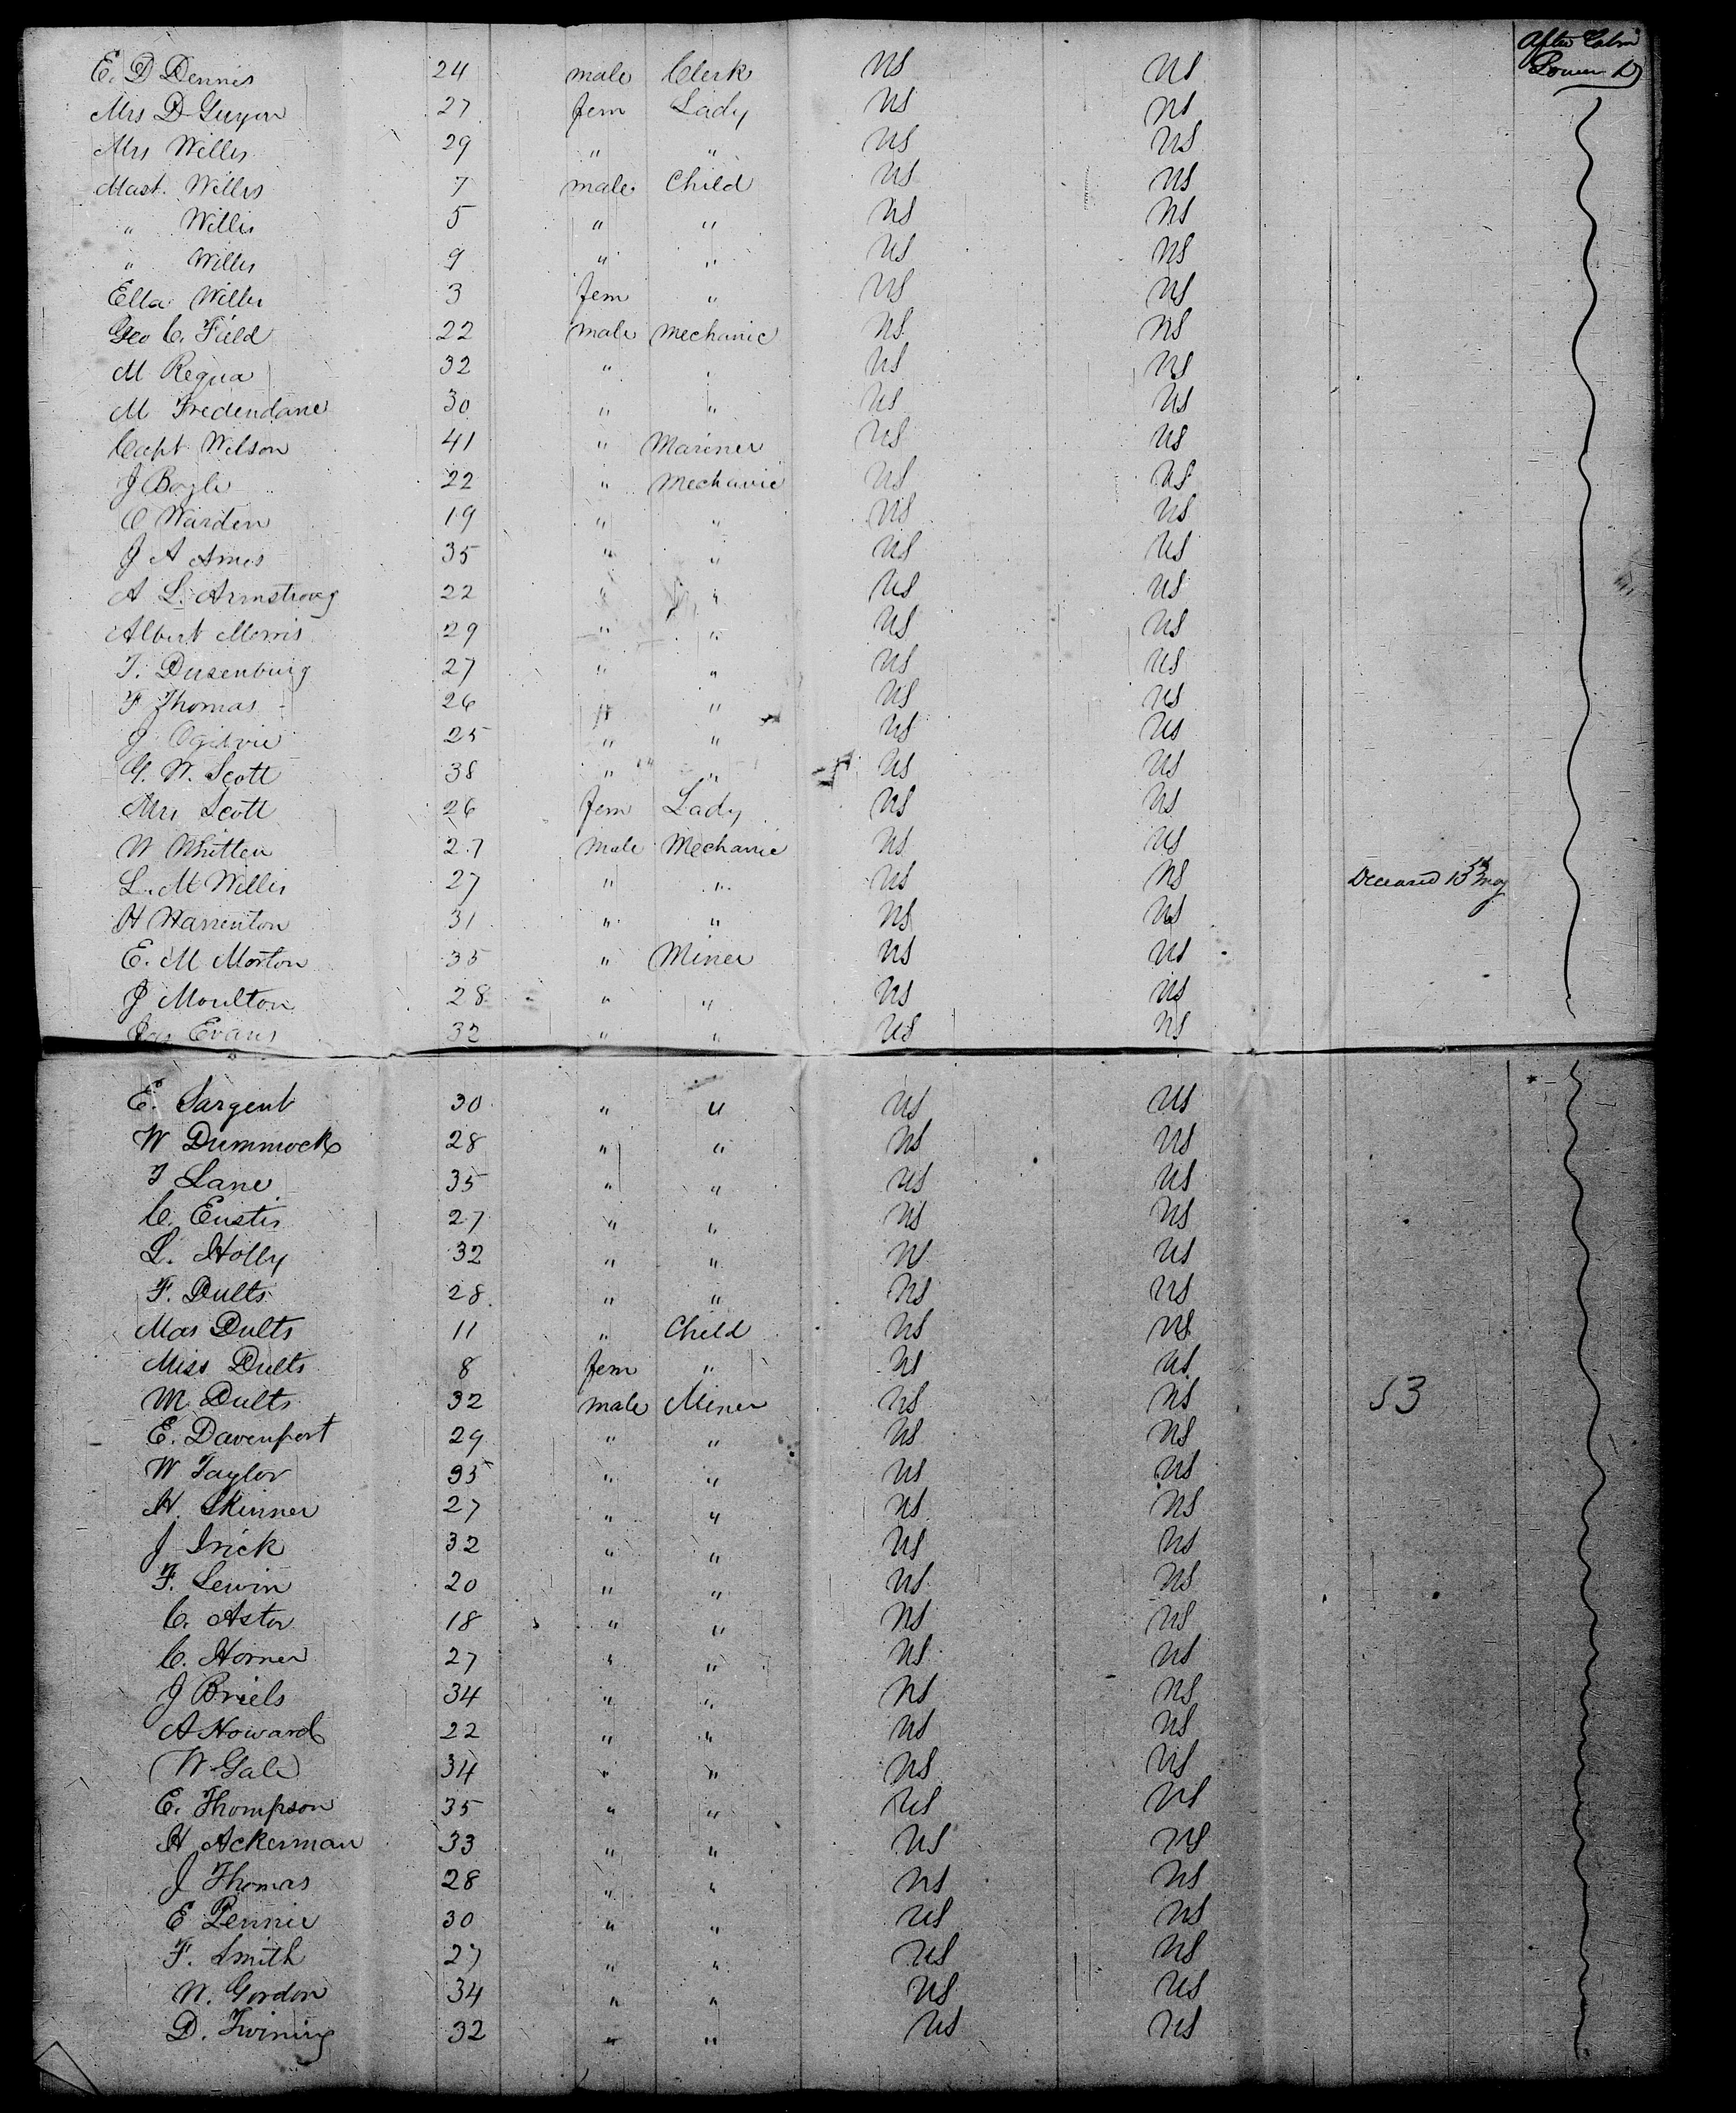 After Cabin
Lower D
E. D Dennis 24 male Clerk US US
Mrs D Guyon 27 fem Lady US US
Mrs Willis 29 " " US US
Mast. Willis 7 male Child US US
" Willis 5 " " US US
" Willis 9 " " US US
Ella Willis 3 fem " US US
Geo C. Field 22 male Mechanic US US
M Requa 32 " " US US
M Fredendane 30 " " US US
Capt Wilson 41 " Mariner US US
J Bogle 22 " Mechanic US US
C Warden 19 " " US US
J A Ames 35 " " US US
A L. Armstrong 22 " " US US
Albert Morris 29 " " US US
T. Dusenburg 27 " " US US
F Thomas 26 " " US US
J Ogilvie 25 " " US US
G. W. Scott 38 " " US US
Mrs Scott 26 fem Lady US US
W Whitten 27 male Mechanic US US
L. M Willis 27 " " US US Deceased 13th May
H Warrenton 31 " " US US
E. M Morton 35 " Miner US US
J Moulton 28 " " US US
Evans 32 " " US US
E. Sargent 30 " " US US
W Dummock 28 " " US US
T Lane 35 " " US US
C. Eustis 27 " " US US
L. Holly 32 " " US US
F. Dults 28 " " US US
Mas Dults 11 " Child US US
Miss Dults 8 fem " US US
M Dults 32 male Miner US US 53
E. Davenport 29 " " US US
W Taylor 35 " " US US
H. Skinner 27 " " US US
J Irick 32 " " US US
F. Lewin 20 " " US US
C. Astor 18 " " US US
C. Horner 27 " " US US
J Briels 34 " " US US
A Howard 22 " " US US
W Gale 34 " " US US
E. Thompson 35 " " US US
H Ackerman 33 " " US US
J Thomas 28 " " US US
E Pennie 30 " " US US
F. Smith 27 " " US US
W. Gordon 34 " " US US
D. Twining 32 " " US US